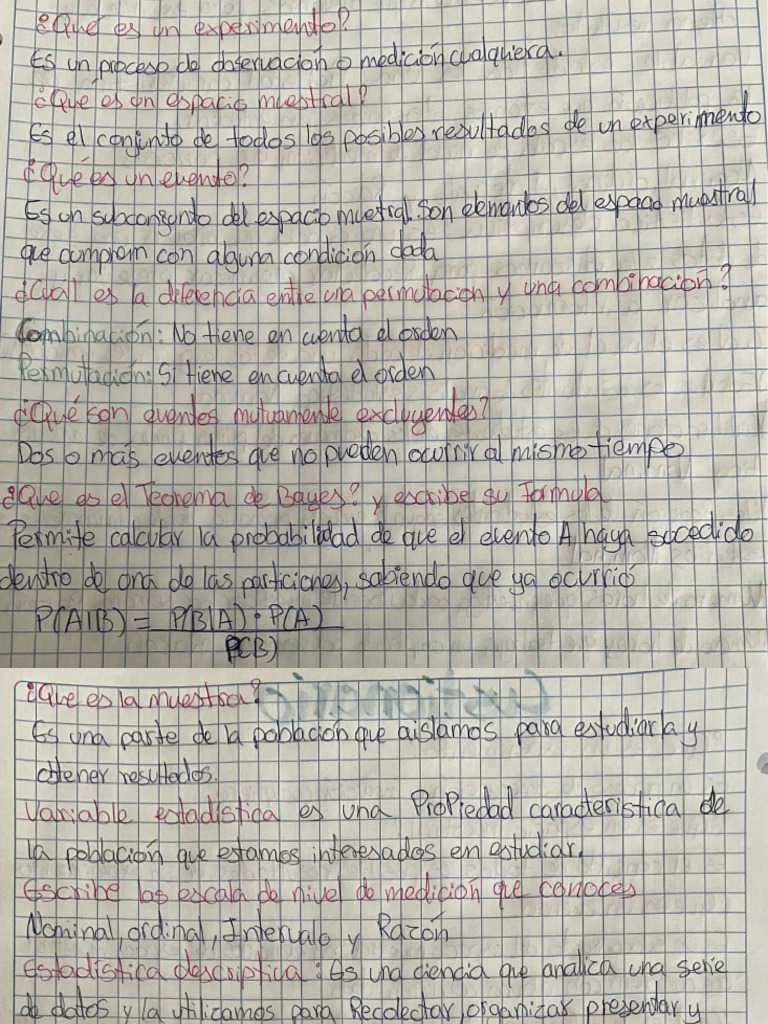 ¿Qué es un experimento?
Es un proceso de observación o medición cualquiera.
¿Qué es un espacio muestral?
Es el conjunto de todos los posibles resultados de un experimento
¿Qué es un evento?
Es un subconjunto del espacio muestral. Son elementos del espacio muestral
que cumplem con alguna condición dada
¿Cual es la diferencia entre una permutacion y una combinación?
Combinación: No tiene en cuenta el orden
Permutación: Sí tiene en cuenta el orden
¿Qué son eventos mutuamente excluyentes?
Dos o más eventos que no pueden ocurrir al mismo tiempo
¿Que es el Teorema de Bayes? y escribe su formula
Permite calcular la probabilidad de que el evento A haya sucedido
dentro de una de las particiones, sabiendo que ya ocurrió
P(A|B) = P(B|A) · P(A)
P(B)
¿Que es la muestra?
Es una parte de la población que aislamos para estudiarla y
obtener resultados.
Variable estadística es una Propiedad caracteristica de
la población que estamos interesados en estudiar.
Escribe las escala de nivel de medición que conoces
Nominal, ordinal, Intervalo y Razón
Estadistica descriptiva: Es una ciencia que analiza una serie
de datos y la utilizamos para Recolectar, organizar presentar y